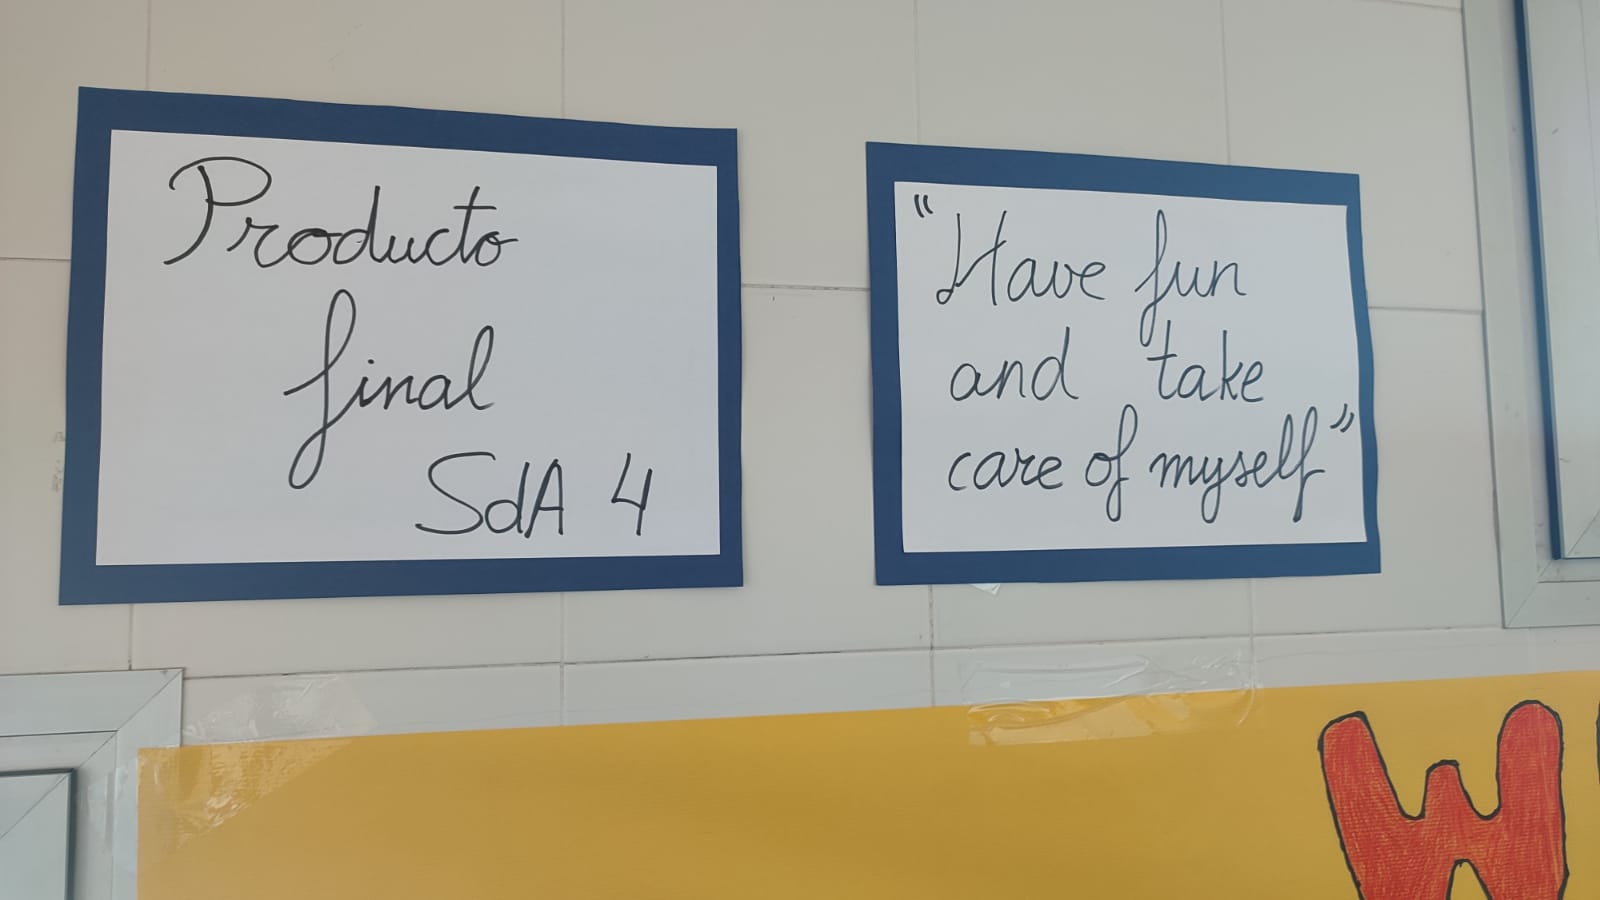 Producto
final
SdA 4
"Have fun
and take
care of myself"
W